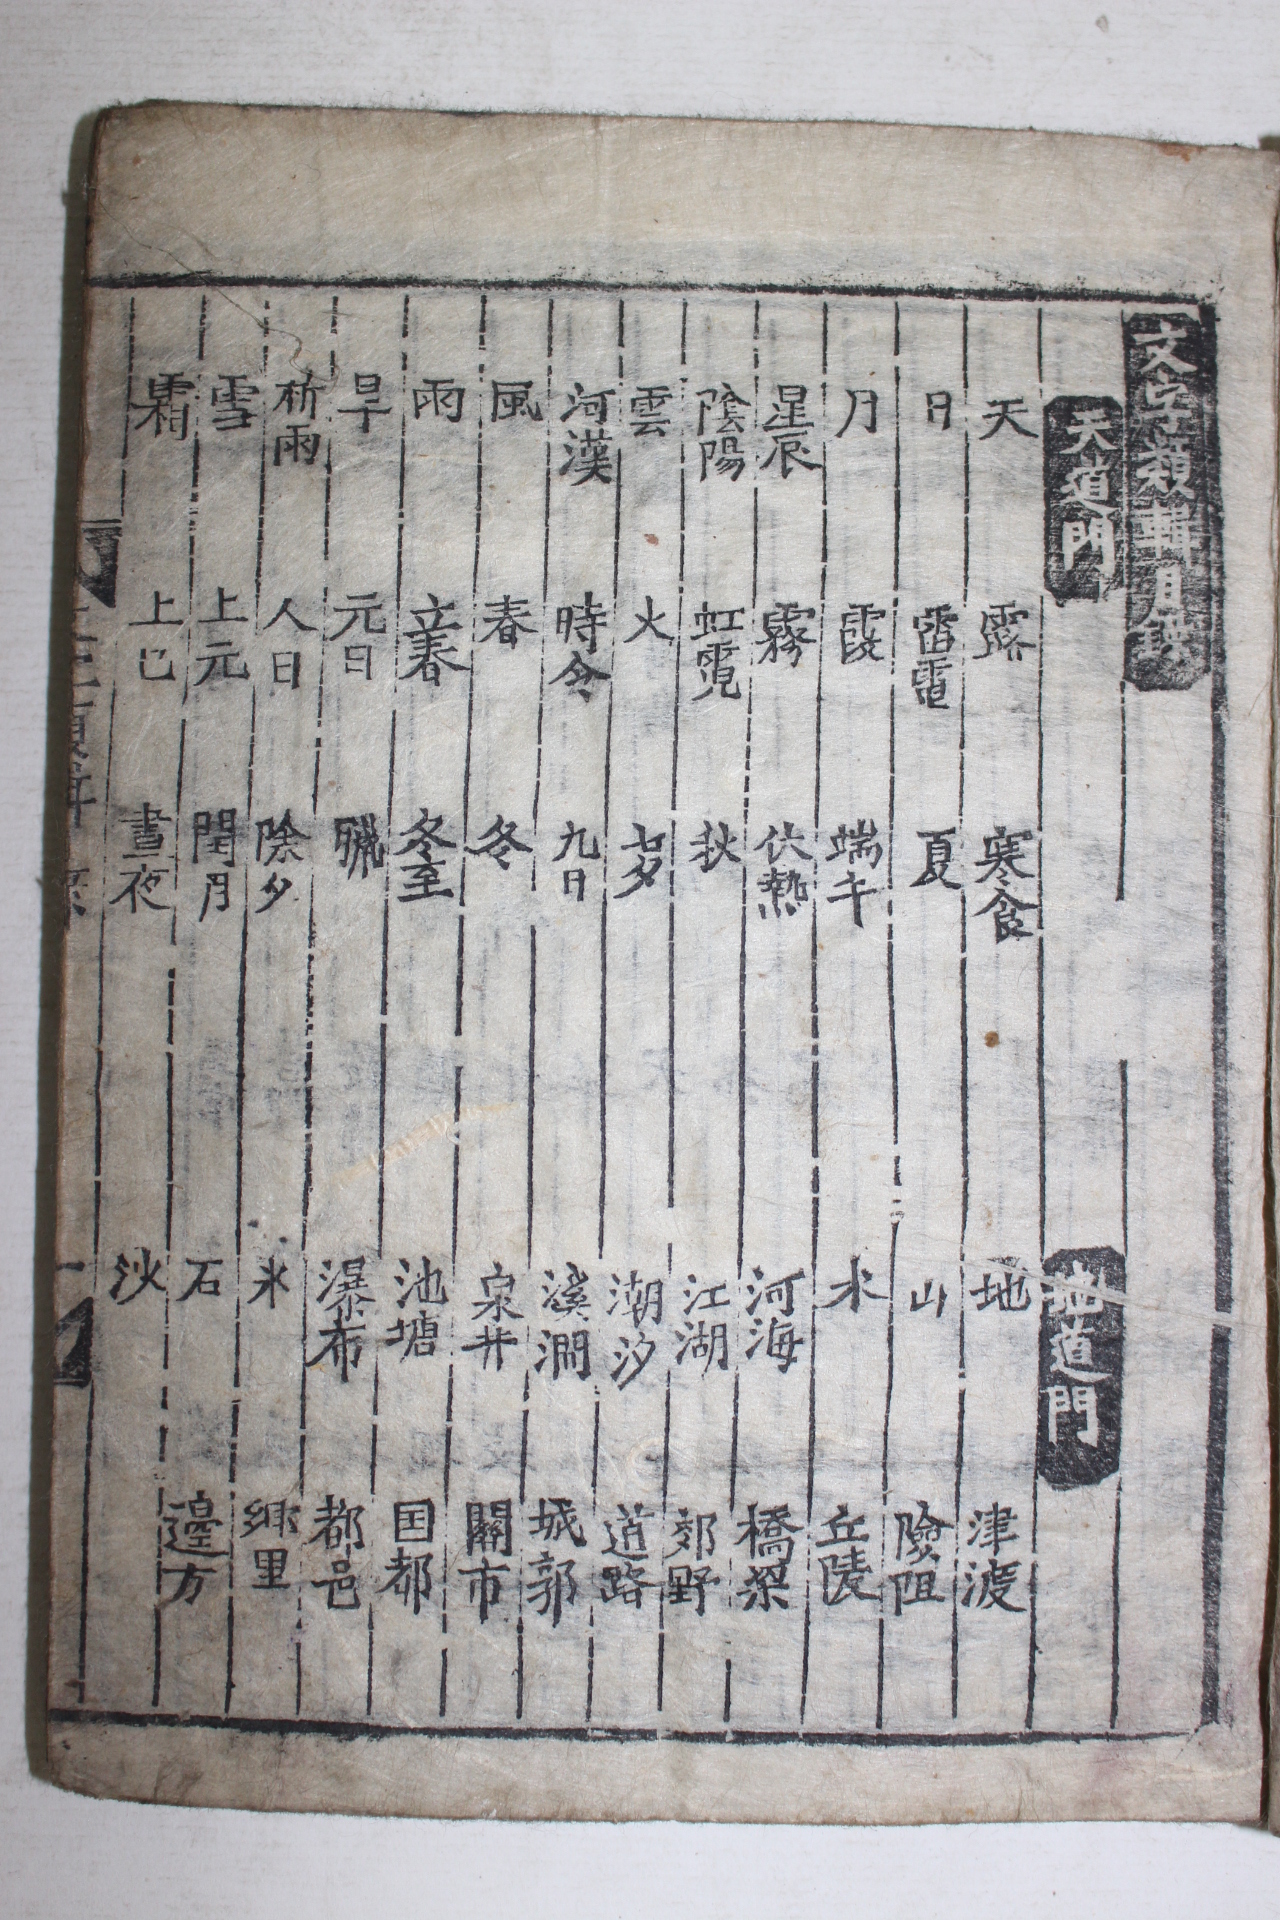 文字類輯目錄
天道門
天 日 月 星辰 陰陽 雲 河漢 風 雨 旱 祈雨 雪 霜
露 雷電 霞 霧 虹霓 火 時令 春 立春 元日 人日 上元 上巳
寒食 夏 端午 伏熱 秋 七夕 九日 冬 冬至 臘 除夕 閏月 晝夜
地道門
地 山 水 河海 江湖 潮汐 溪澗 泉井 池塘 瀑布 氷 石 沙
津渡 險阻 丘陵 橋梁 郊野 道路 城郭 關市 国都 都邑 鄉里 邊方